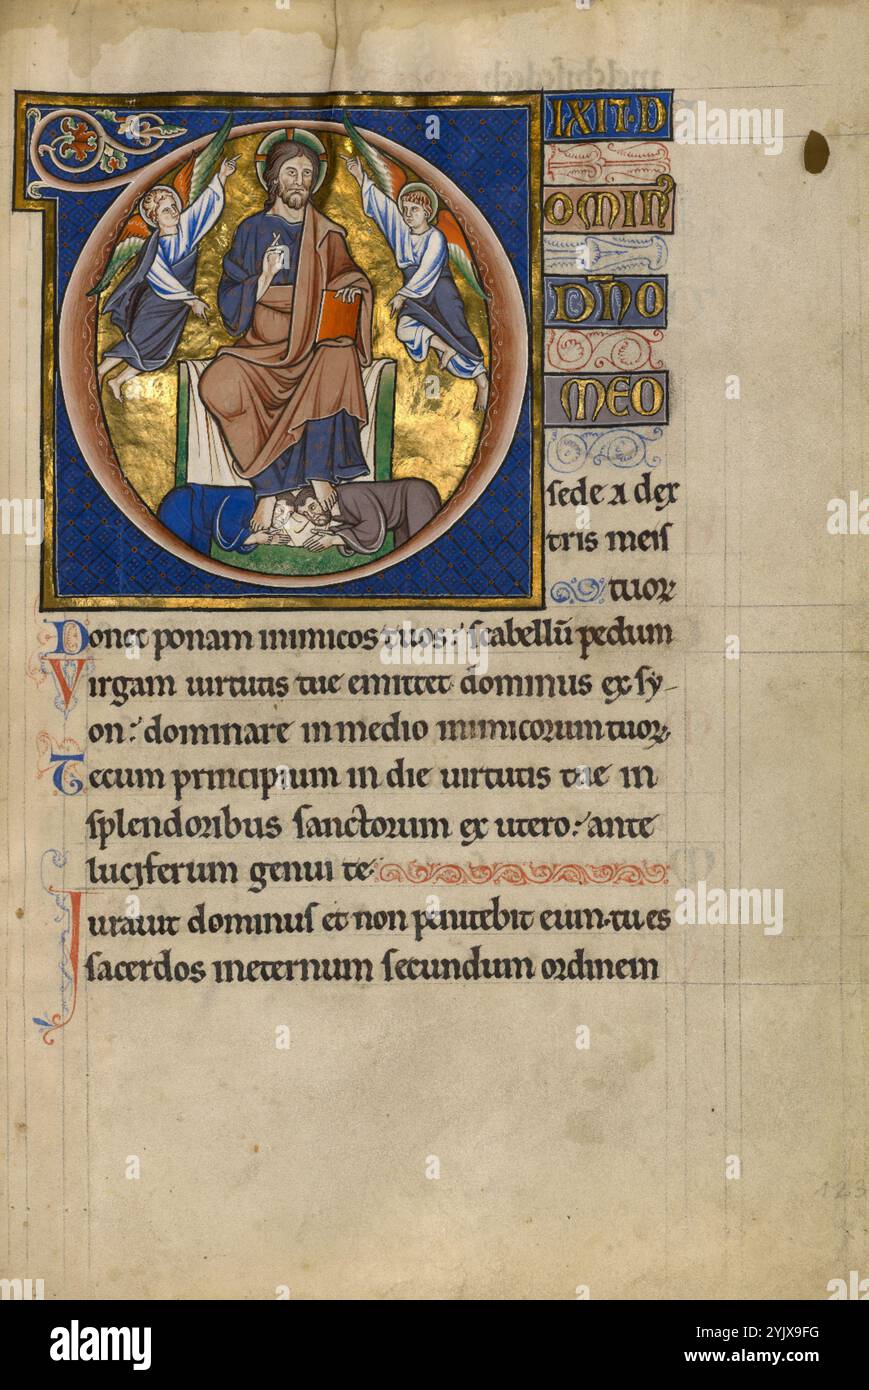 IXIT·D
OMIN
DNO
MEO
sede a dex
tris meis
tuoꝝ
Donec ponam inimicos tuos: scabellū pedum
Virgam uirtutis tue emittet dominus ex sy-
on: dominare in medio inimicorum tuoꝝ
Tecum principium in die uirtutis tue in
splendoribus sanctorum ex utero: ante
luciferum genui te
Jurauit dominus et non penitebit eum· tu es
sacerdos ineternum secundum ordinem
123
alamy
Image ID: 2YJX9FG
www.alamy.com